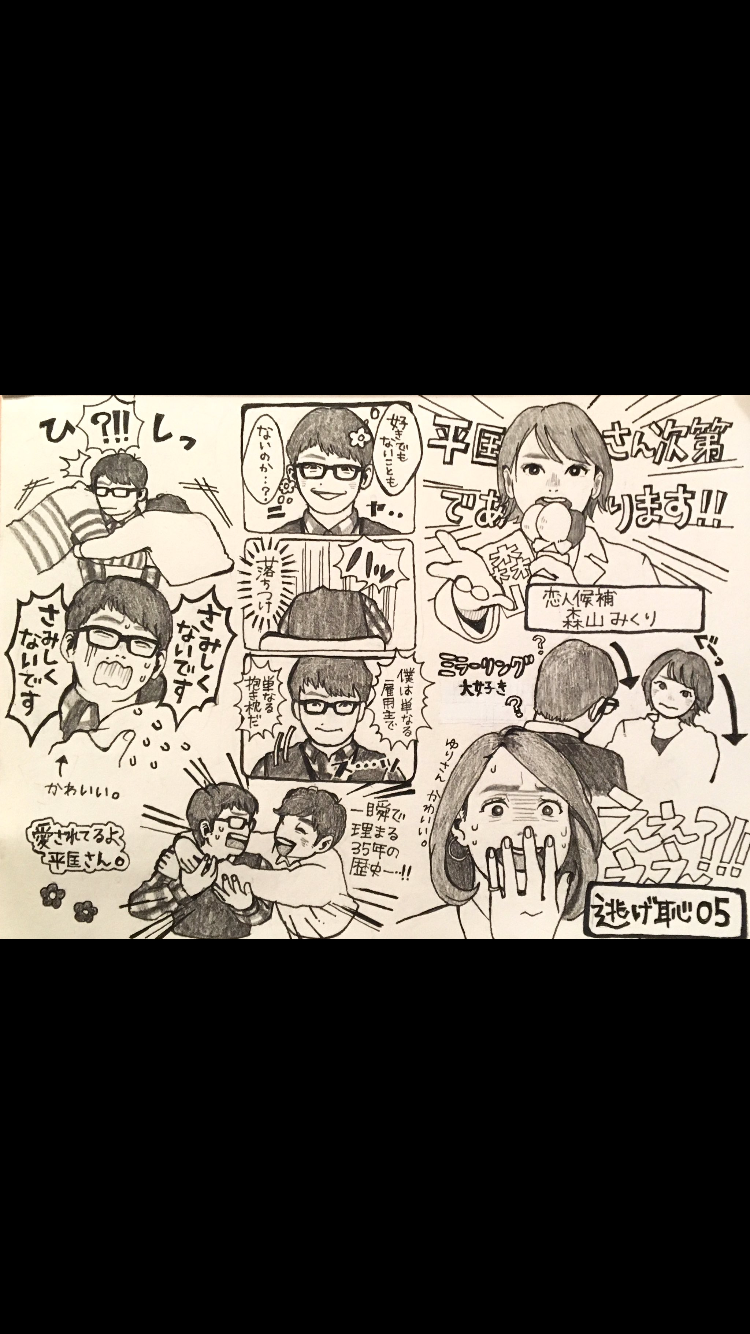 平匡さん次第
であります!!
恋人候補
森山みくり
ミラーリング
大好き
ぐっ
?
?
ゆりさん かわいい。
ええ〜?!!
ええ〜
逃げ恥05
好きでも
ないことも
ないのか…?
ニヤ..
ハッ
落ちつけ
僕は単なる
雇用主で
単なる
抱き枕だ
一瞬で
埋まる
35年の
歴史…!!
ひ ?!!! しっ
さみしく
ないです
さみしく
ないです
↑
かわいい。
愛されてるよ
平匡さん。